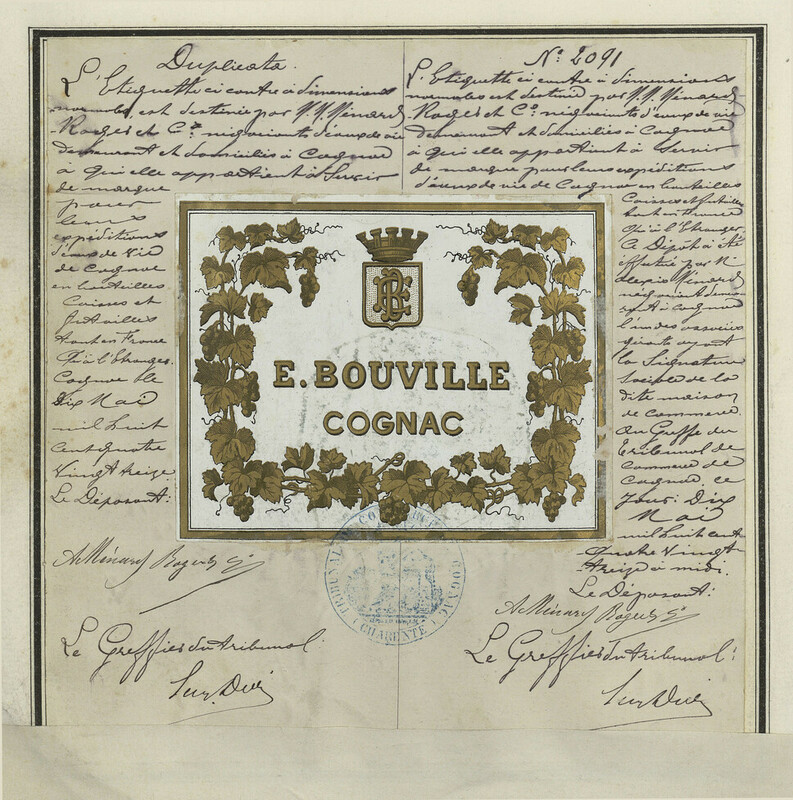 Duplicata.
L'Etiquette ci contre à dimensions
normales, est destinée par M.M. Ménard
Roges et Cº négociants d'eaux de vie
demeurant et domiciliés à Cognac
à qui elle appartient à Servir
de marque
pour
leurs
expéditions
d'eaux de vie
de Cognac
en bouteilles
Caisses et
futailles
tant en France
Qu'à l'Etranger.
Cognac le
Dix Mai
mil huit
cent quatre
Vingt treize
Le Déposant:
A Ménard Roges Cº
Le Greffier du tribunal:
Nº 2091
L'Etiquette ci contre à dimensions
normales est destinée par M.M. Ménard
Roges et Cº négociants d'eaux de vie
demeurant et domiciliés à Cognac
à qui elle appartient à Servir
de marque pour leurs expéditions
d'eaux de vie de Cognac en bouteilles
Caisses et futailles
tant en France
Qu'à l'Etranger.
Ce Dépôt a été
effectué par M.
Alexis Ménard
négociant demeu-
rant à Cognac
l'un des associés
ayant
la Signature
Sociale de la
dite maison
de commerce
au Greffe du
tribunal de
commerce de
Cognac, ce
Jour: Dix
Mai
mil huit cent
Quatre Vingt
treize à midi.
Le Déposant:
A Ménard Roges Cº
Le Greffier du tribunal:
E. BOUVILLE
COGNAC
TRIBUNAL DE COMMERCE COGNAC
(CHARENTE)